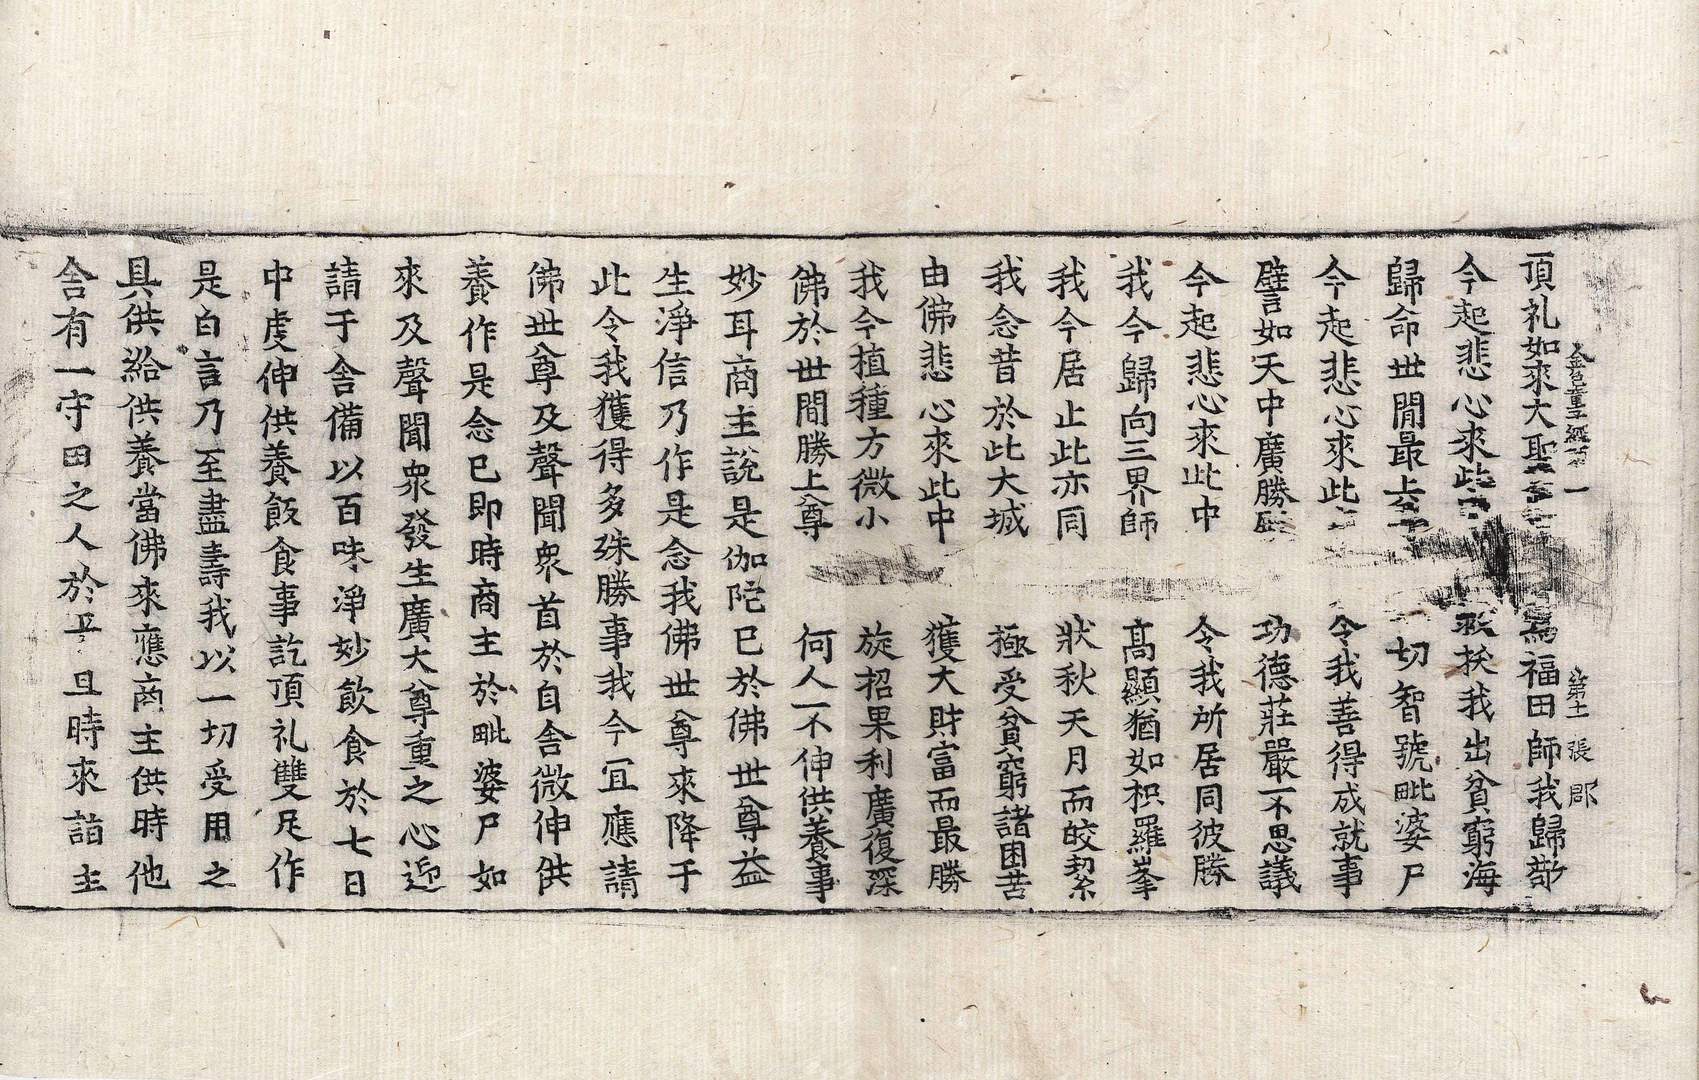 金色童子經 一 第十一張 郡
頂礼如來大聖 為福田師我歸敬
今起悲心來此中 拔我出貧窮海
歸命世間最上 一切智號毗婆尸
今起悲心來此 令我善得成就事
譬如天中廣勝 功德莊嚴不思議
今起悲心來此中 令我所居同彼勝
我今歸向三界師 高顯猶如枳羅峯
我今居止此亦同 狀秋天月而皎潔
我念昔於此大城 極受貧窮諸困苦
由佛悲心來此中 獲大財富而最勝
我今植種方微小 旋招果利廣復深
佛於世間勝上尊 何人不伸供養事
妙耳商主說是伽陀已於佛世尊益
生淨信乃作是念我佛世尊來降于
此令我獲得多殊勝事我今冝應請
佛世尊及聲聞衆首於自舍微伸供
養作是念已即時商主於毗婆尸如
來及聲聞衆發生廣大尊重之心近
請于舍備以百味淨妙飲食於七日
中虔伸供養飯食事訖頂礼雙足作
是白言乃至盡壽我以一切受用之
具供給供養當佛來應商主供時他
舍有一守田之人於平旦時來詣主